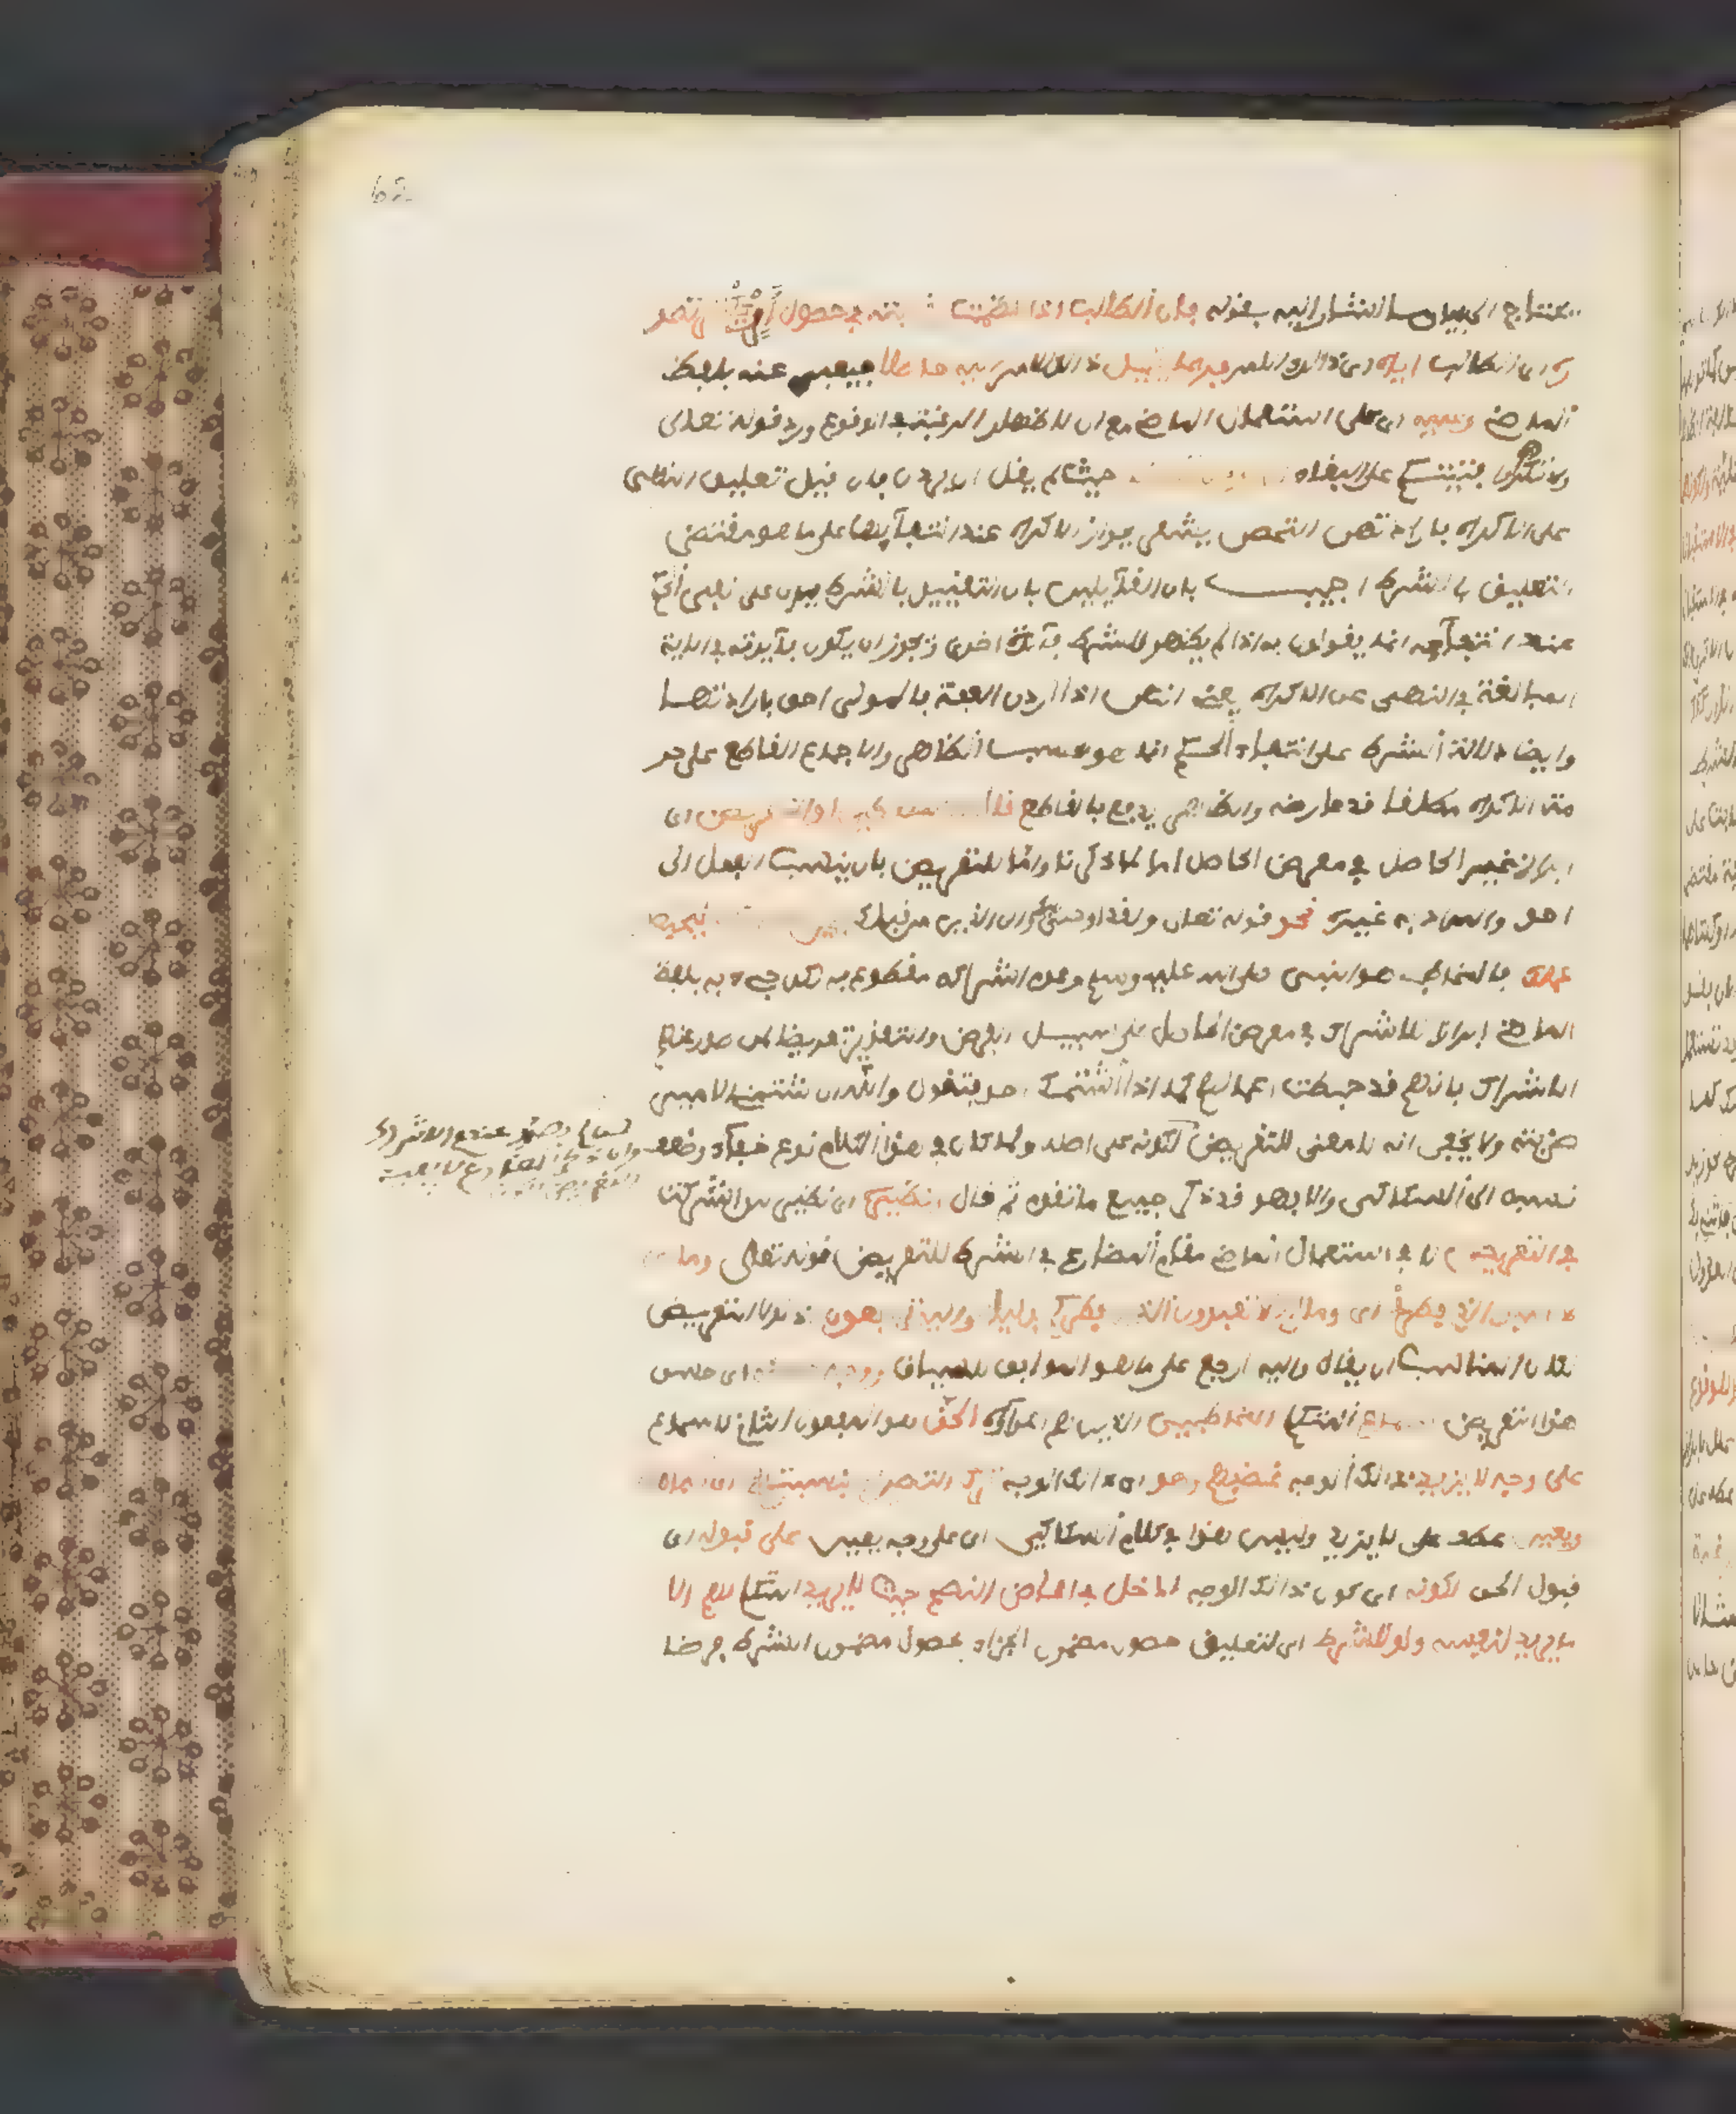 يحتاج الى بيان ما اشار اليه بقوله فان الطالب اذا عظمت رغبته في حصول امر تصور
ه اى الطالب اياه اى ذالك الامر فربما يخيل ذالك الامر اليه حاصلا فيعبر عنه بلفظ
الماضي وعليه اى على استعمال الماضي مع ان لاظهار الرغبة في الوقوع ورد قوله تعلى
ولا تكرهوا فتيتكم على البغاء حيث لم يقل ان يردن فان قيل تعليق النهى
على الاكراه بارادتهن التحصن يشعر بجواز الاكراه عند انتفائها على ما هو مقتضى
التعليق بالشرط اجيب بان القائلين بان التقييد بالشرط يدل على نفى الحكم
عند انتفائه انما يقولون به اذا لم يظهر للشرط فائدة اخرى ويجوز ان يكون فائدته في الاية
المبالغة في النهى عن الاكراه يعنى انهن اذا اردن العفة فالمولى احق بارادتها
وايضا دلالة الشرط على انتفاء الحكم انما هو بحسب الظاهر والاجماع القاطع على حر
مة الاكراه مطلقا قد عارضه والظاهر يدفع بالقاطع قال اى
ابراز غير الحاصل في معرض الحاصل اما لما ذكرنا واما للتعريض بان ينسب الفعل الى
احد والمراد به غيره نحو قوله تعلى ولقد اوحى اليك والى الذين من قبلك ليحبطن
عملك فالمخاطب هو النبي صلى الله عليه وسلم وعدم اشراكه مقطوع به لكن جيء به بلفظ
الماضي ابرازا للاشراك في معرض الحاصل على سبيل الفرض والتقدير تعريضا لمن صدر عنهم
الاشراك بانهم قد حبطت اعمالهم كما اذا شتمك احد فتقول والله ان شتمني الامير
ضربته ولا يخفى انه لا معنى للتعريض لكونه على اصله ولما كان في هذا الكلام نوع خفاء وضعف
نسبه الى السكاكي والا فهو قد ذكر جميع ما تقدم ثم قال ونظيره اى نظير لئن اشركت
في التعريض لا في استعمال الماضي مقام المضارع في الشرط للتعريض قوله تعلى وما لي
لا اعبد الذي فطرني اى وما لكم لا تعبدون الذي فطركم بدليل واليه ترجعون اذ لولا التعريض
لكان المناسب ان يقال واليه ارجع على ما هو الموافق للسياق ووجه اى حسن
هذا التعريض المتكلم المخاطبين الذين هم اعداؤه الحق هو المفعول الثاني للاسماع
على وجه لا يزيد ذالك الوجه غضبهم وهو اى ذالك الوجه ترك التصريح بنسبتهم الى
ويعين عطف على لا يزيد وليس هذا في كلام السكاكي اى على وجه يعين على قبوله اى
قبول الحق لكونه اى كون ذالك الوجه ادخل في امحاض النصح حيث لا يريد المتكلم لهم الا
ما يريد لنفسه ولو للشرط اى لتعليق حصول مضمون الجزاء بحصول مضمون الشرط فرضا